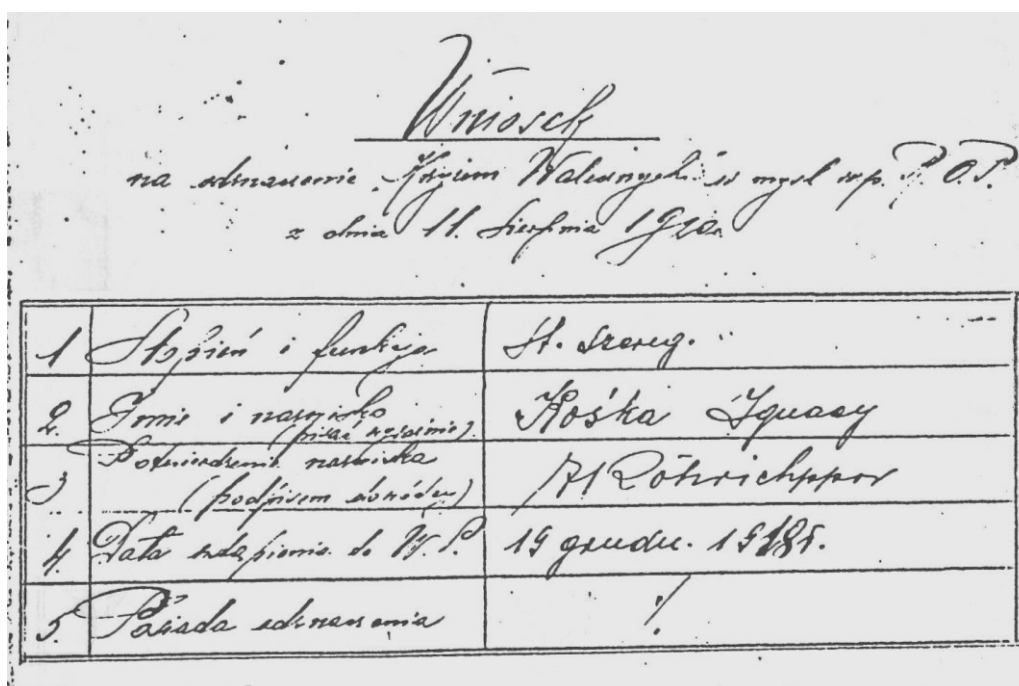 Wniosek
na odznaczenie "Krzyżem Walecznych" w myśl rozp. R. O. P.
z dnia 11. Sierpnia 1920r
1 Stopień i funkcja St. szereg.
2. Imię i nazwisko (pisać wyraźnie) Kośka Ignacy
3 Potwierdzenie nazwiska
(podpisem dowódcy)
4. Data wstąpienia do W. P. 19 grudn. 1918r.
5. Posiada odznaczenia /